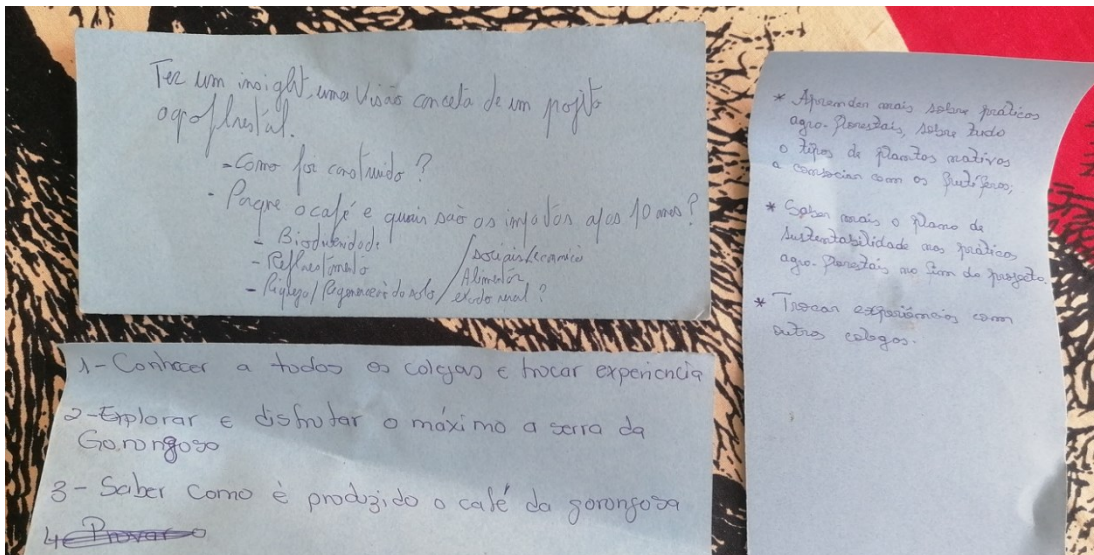 Ter um insight, uma visão conceta de um pojto
agoflrestal.
- Como foi construido?
- Porque o café e quais são os impatos apos 10 anos?
- Biodivesidade
- Reflrestamento
- Riqueza/Regeneração do solo/
sociais/economico
Alimentar
exodo rural?
1- Conhecer a todos os colegas e trocar experiencia
2- Explorar e disfrutar o máximo a serra da
Gorongosa
3- Saber como è produzido o café da gorongosa
4 Provar o
* Aprender mais sobre práticas
agro-florestais, sobre tudo
o tipos de plantas nativas
a consociar com as frutíferas;
* Saber mais o plano de
sustentabilidade nas práticas
agro-florestais no fim do projecto.
* Trocar experiências com
outros colegas.